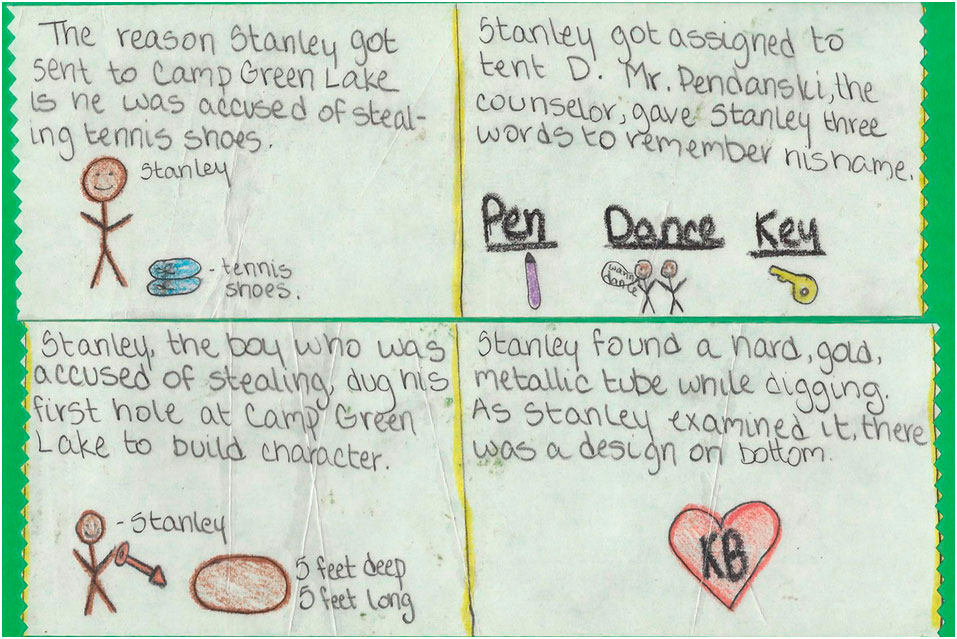 The reason Stanley got
sent to Camp Green Lake
is he was accused of steal-
ing tennis shoes.
Stanley
- tennis
shoes.
Stanley got assigned to
tent D. Mr. Pendanski, the
counselor, gave Stanley three
words to remember his name.
Pen Dance Key
wanna
dance
Stanley, the boy who was
accused of stealing, dug his
first hole at Camp Green
Lake to build character.
- Stanley
5 feet deep
5 feet long
Stanley found a hard, gold,
metallic tube while digging.
As Stanley examined it, there
was a design on bottom.
KB